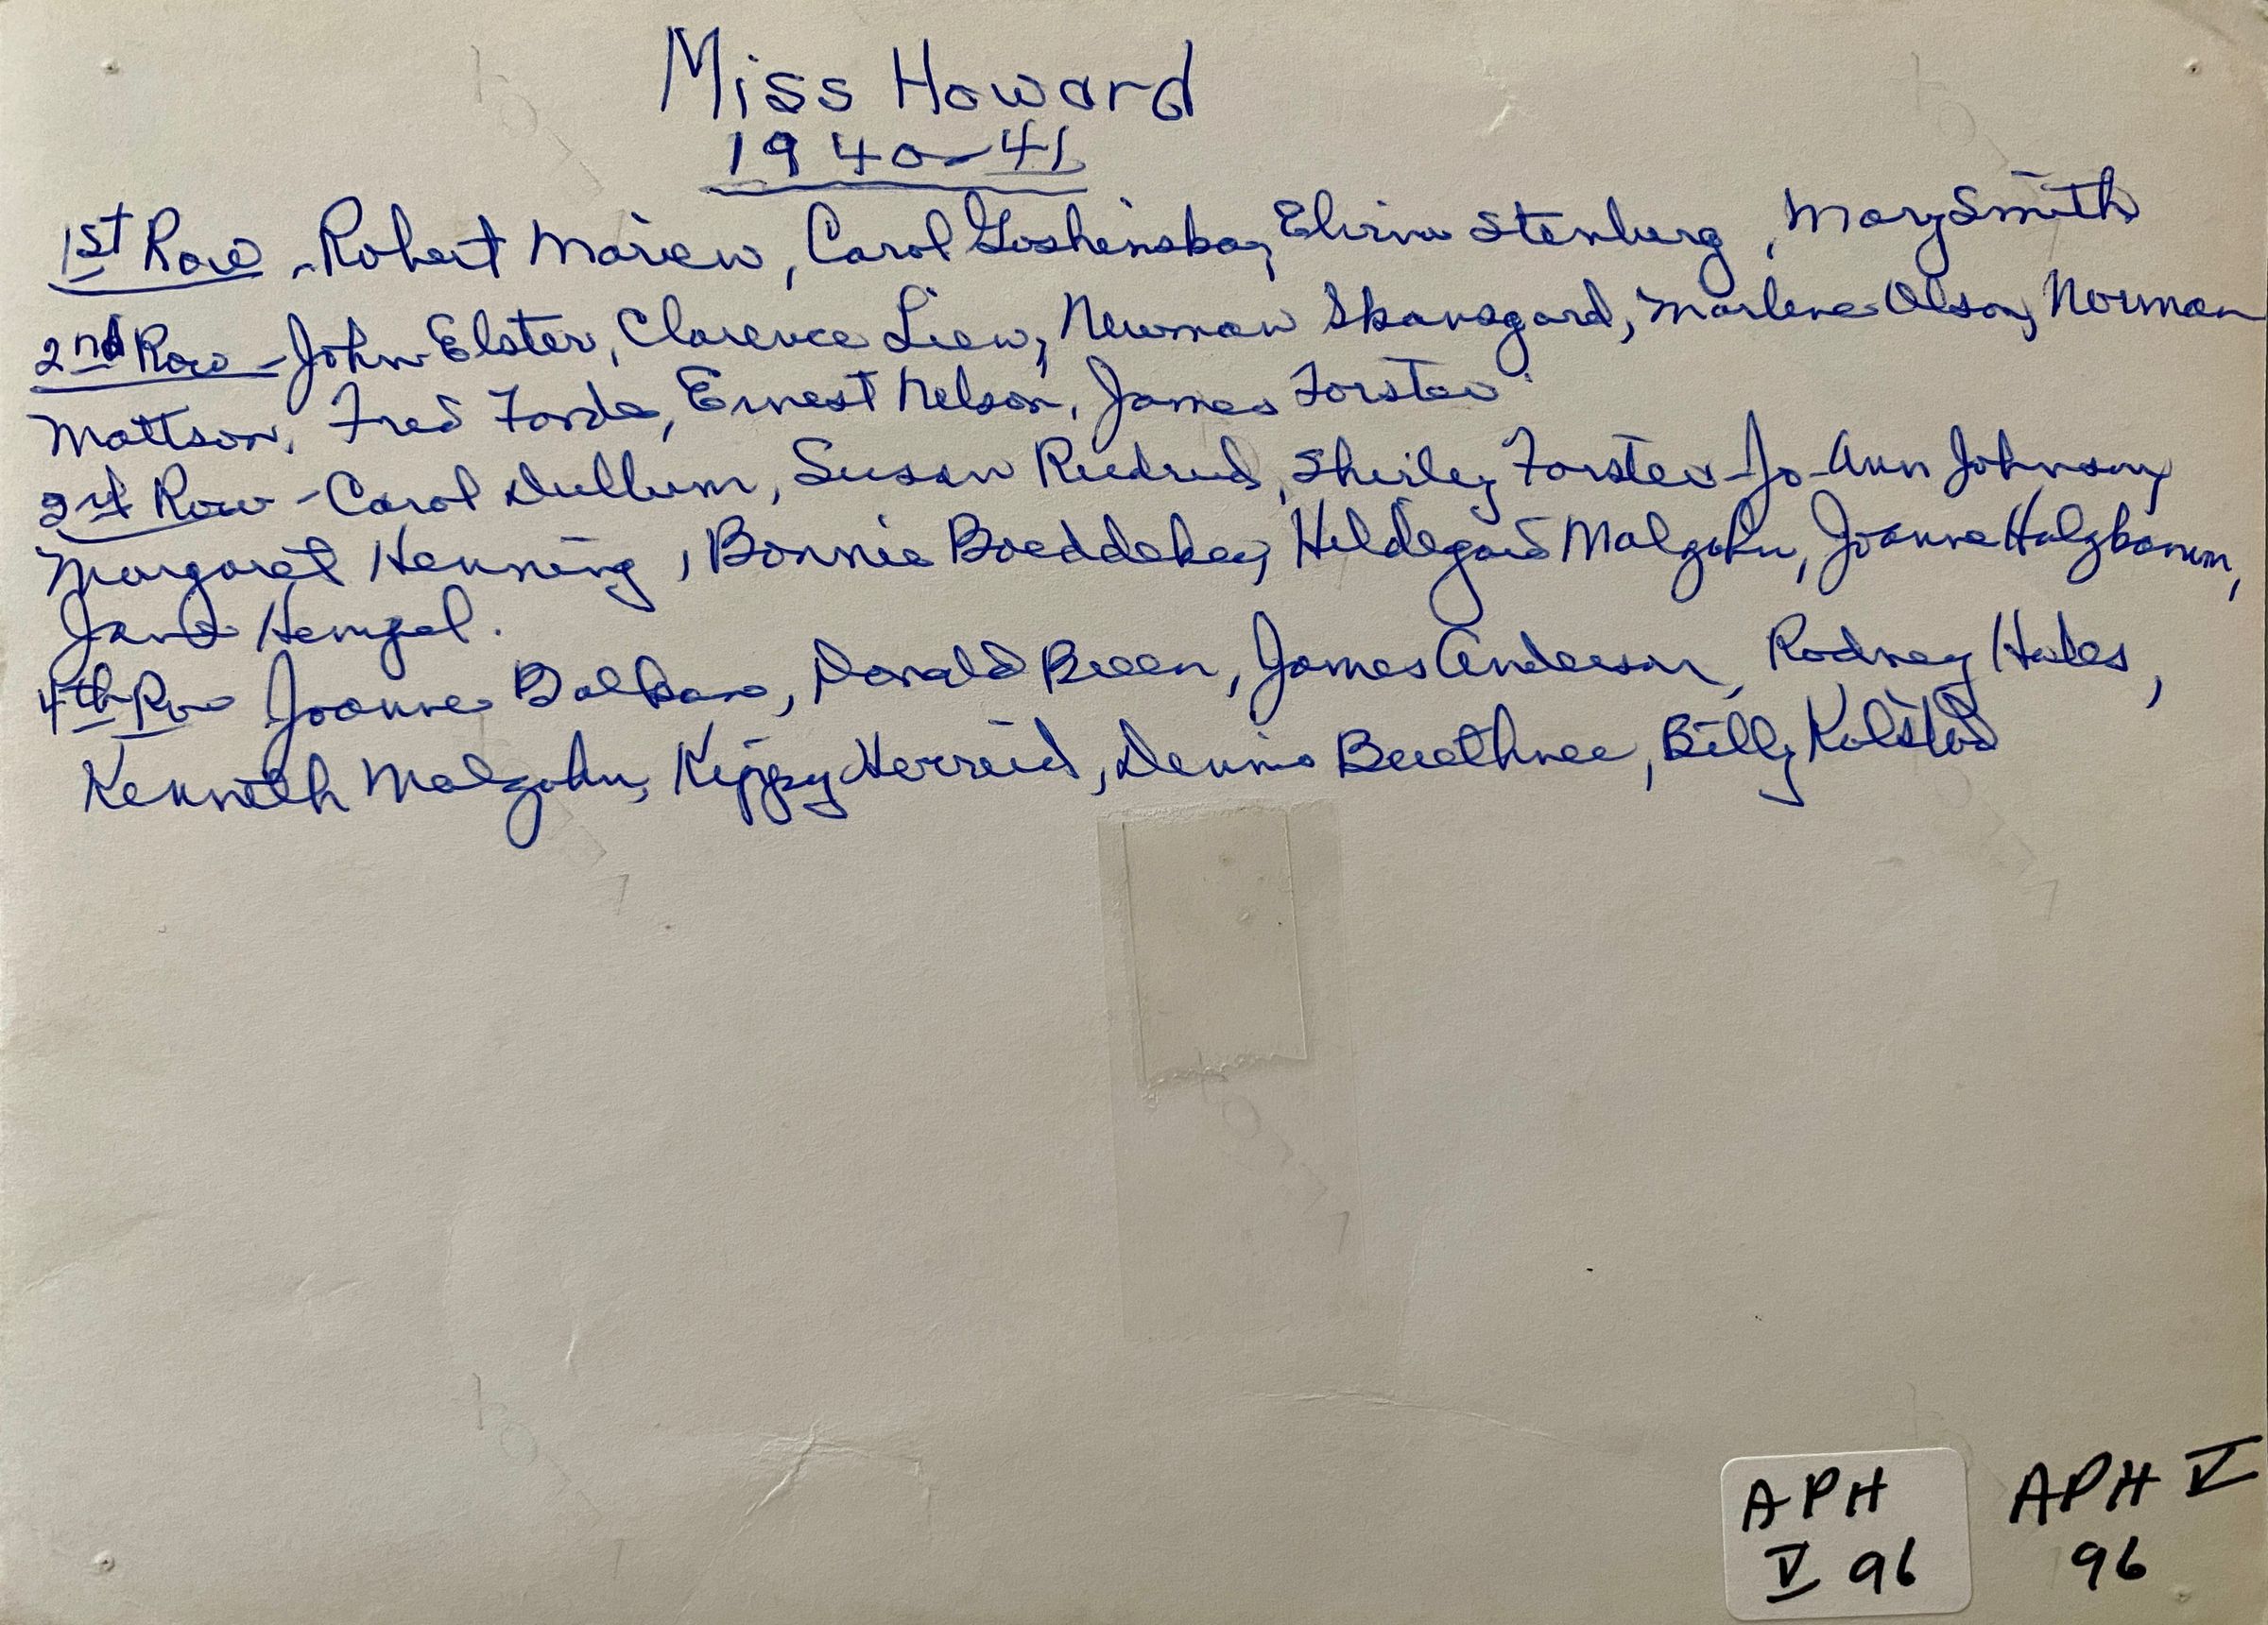 Miss Howard
1940-41
1st Row - Robert Marien, Carol Goshinska, Elvin Stenburg, Mary Smith
2nd Row - John Elster, Clarence Lien, Newman Skansgard, Marlene Olson, Norman
Mattson, Fred Forde, Ernest Nelson, James Forster
3rd Row - Carol Dullum, Susan Rudrud, Shirley Forster - Jo Ann Johnson,
Margaret Henning, Bonnie Boeddeker, Hildegard Malzahn, Joanne Holzbaum,
Jane Hempel.
4th Row Joanne Balkan, Donald Breen, James Anderson, Rodney Hales,
Kenneth Malzahn, Kippy Herreid, Dennis Buethner, Billy Kolstad
APH
V 96
APH V
96